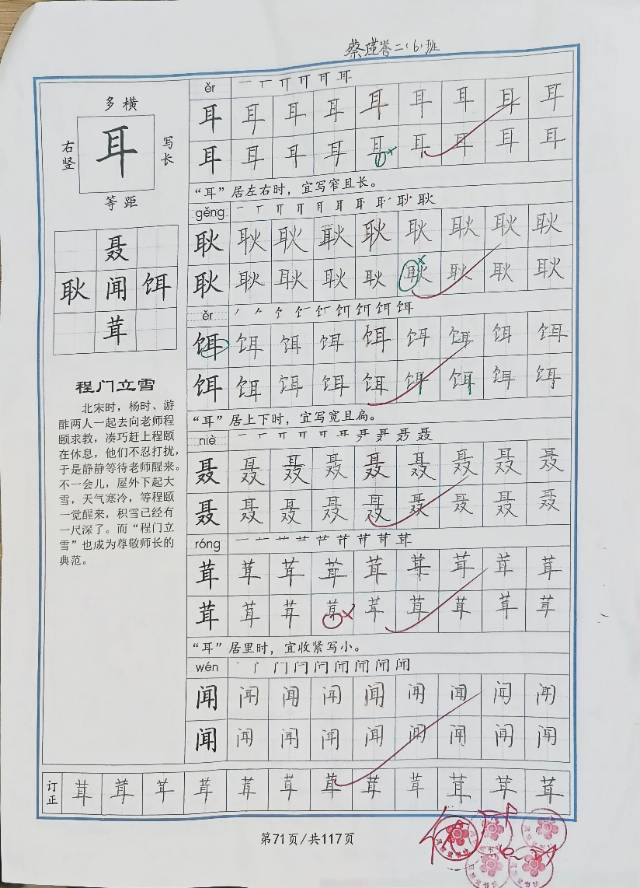 二(6)班
多横
右竖
耳
写长
等距
聂
耿 闻 饵
茸
程门立雪
北宋时，杨时、游
酢两人一起去向老师程
颐求教，凑巧赶上程颐
在休息，他们不忍打扰，
于是静静等待老师醒来。
不一会儿，屋外下起大
雪，天气寒冷，等程颐
一觉醒来，积雪已经有
一尺深了。而“程门立
雪”也成为尊敬师长的
典范。
ěr
耳 耳 耳 耳 耳 耳 耳 耳 耳
耳 耳 耳 耳 耳 耳 耳 耳 耳
“耳”居左右时，宜写窄且长。
gěng
耿 耿 耿 耿 耿 耿 耿 耿 耿
耿 耿 耿 耿 耿 耿 耿 耿 耿
ěr
饵 饵 饵 饵 饵 饵 饵 饵 饵
饵 饵 饵 饵 饵 饵 饵 饵 饵
“耳”居上下时，宜写宽且扁。
niè
聂 聂 聂 聂 聂 聂 聂 聂 聂
聂 聂 聂 聂 聂 聂 聂 聂 聂
róng
茸 茸 茸 茸 茸 茸 茸 茸 茸
茸 茸 茸 茸 茸 茸 茸 茸 茸
“耳”居里时，宜收紧写小。
wén
闻 闻 闻 闻 闻 闻 闻 闻 闻
闻 闻 闻 闻 闻 闻 闻 闻 闻
订正 茸 茸 茸 茸 茸 茸 茸 茸 茸 茸 茸 茸
第71页/共117页